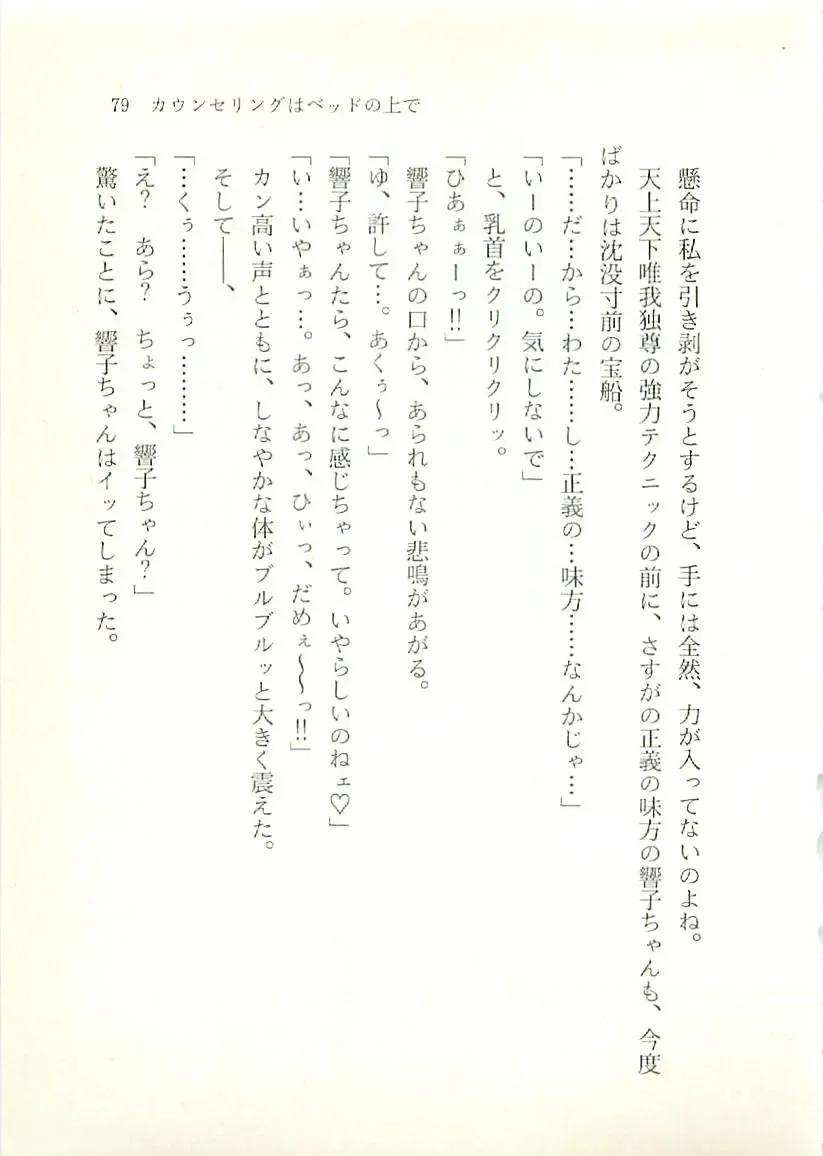 79 カウンセリングはベッドの上で
懸命に私を引き剥がそうとするけど、手には全然、力が入ってないのよね。
天上天下唯我独尊の強力テクニックの前に、さすがの正義の味方の響子ちゃんも、今度
ばかりは沈没寸前の宝船。
「……だ…から…わた……し…正義の…味方……なんかじゃ…」
「いーのいーの。気にしないで」
と、乳首をクリクリクリッ。
「ひあぁぁーっ!!」
響子ちゃんの口から、あられもない悲鳴があがる。
「ゆ、許して…。あくぅ～っ」
「響子ちゃんたら、こんなに感じちゃって。いやらしいのねェ♡」
「い…いやぁっ…。あっ、あっ、ひぃっ、だめぇ～～っ!!」
カン高い声とともに、しなやかな体がブルブルッと大きく震えた。
そして――、
「…くぅ……うぅっ………」
「え？　あら？　ちょっと、響子ちゃん？」
驚いたことに、響子ちゃんはイッてしまった。